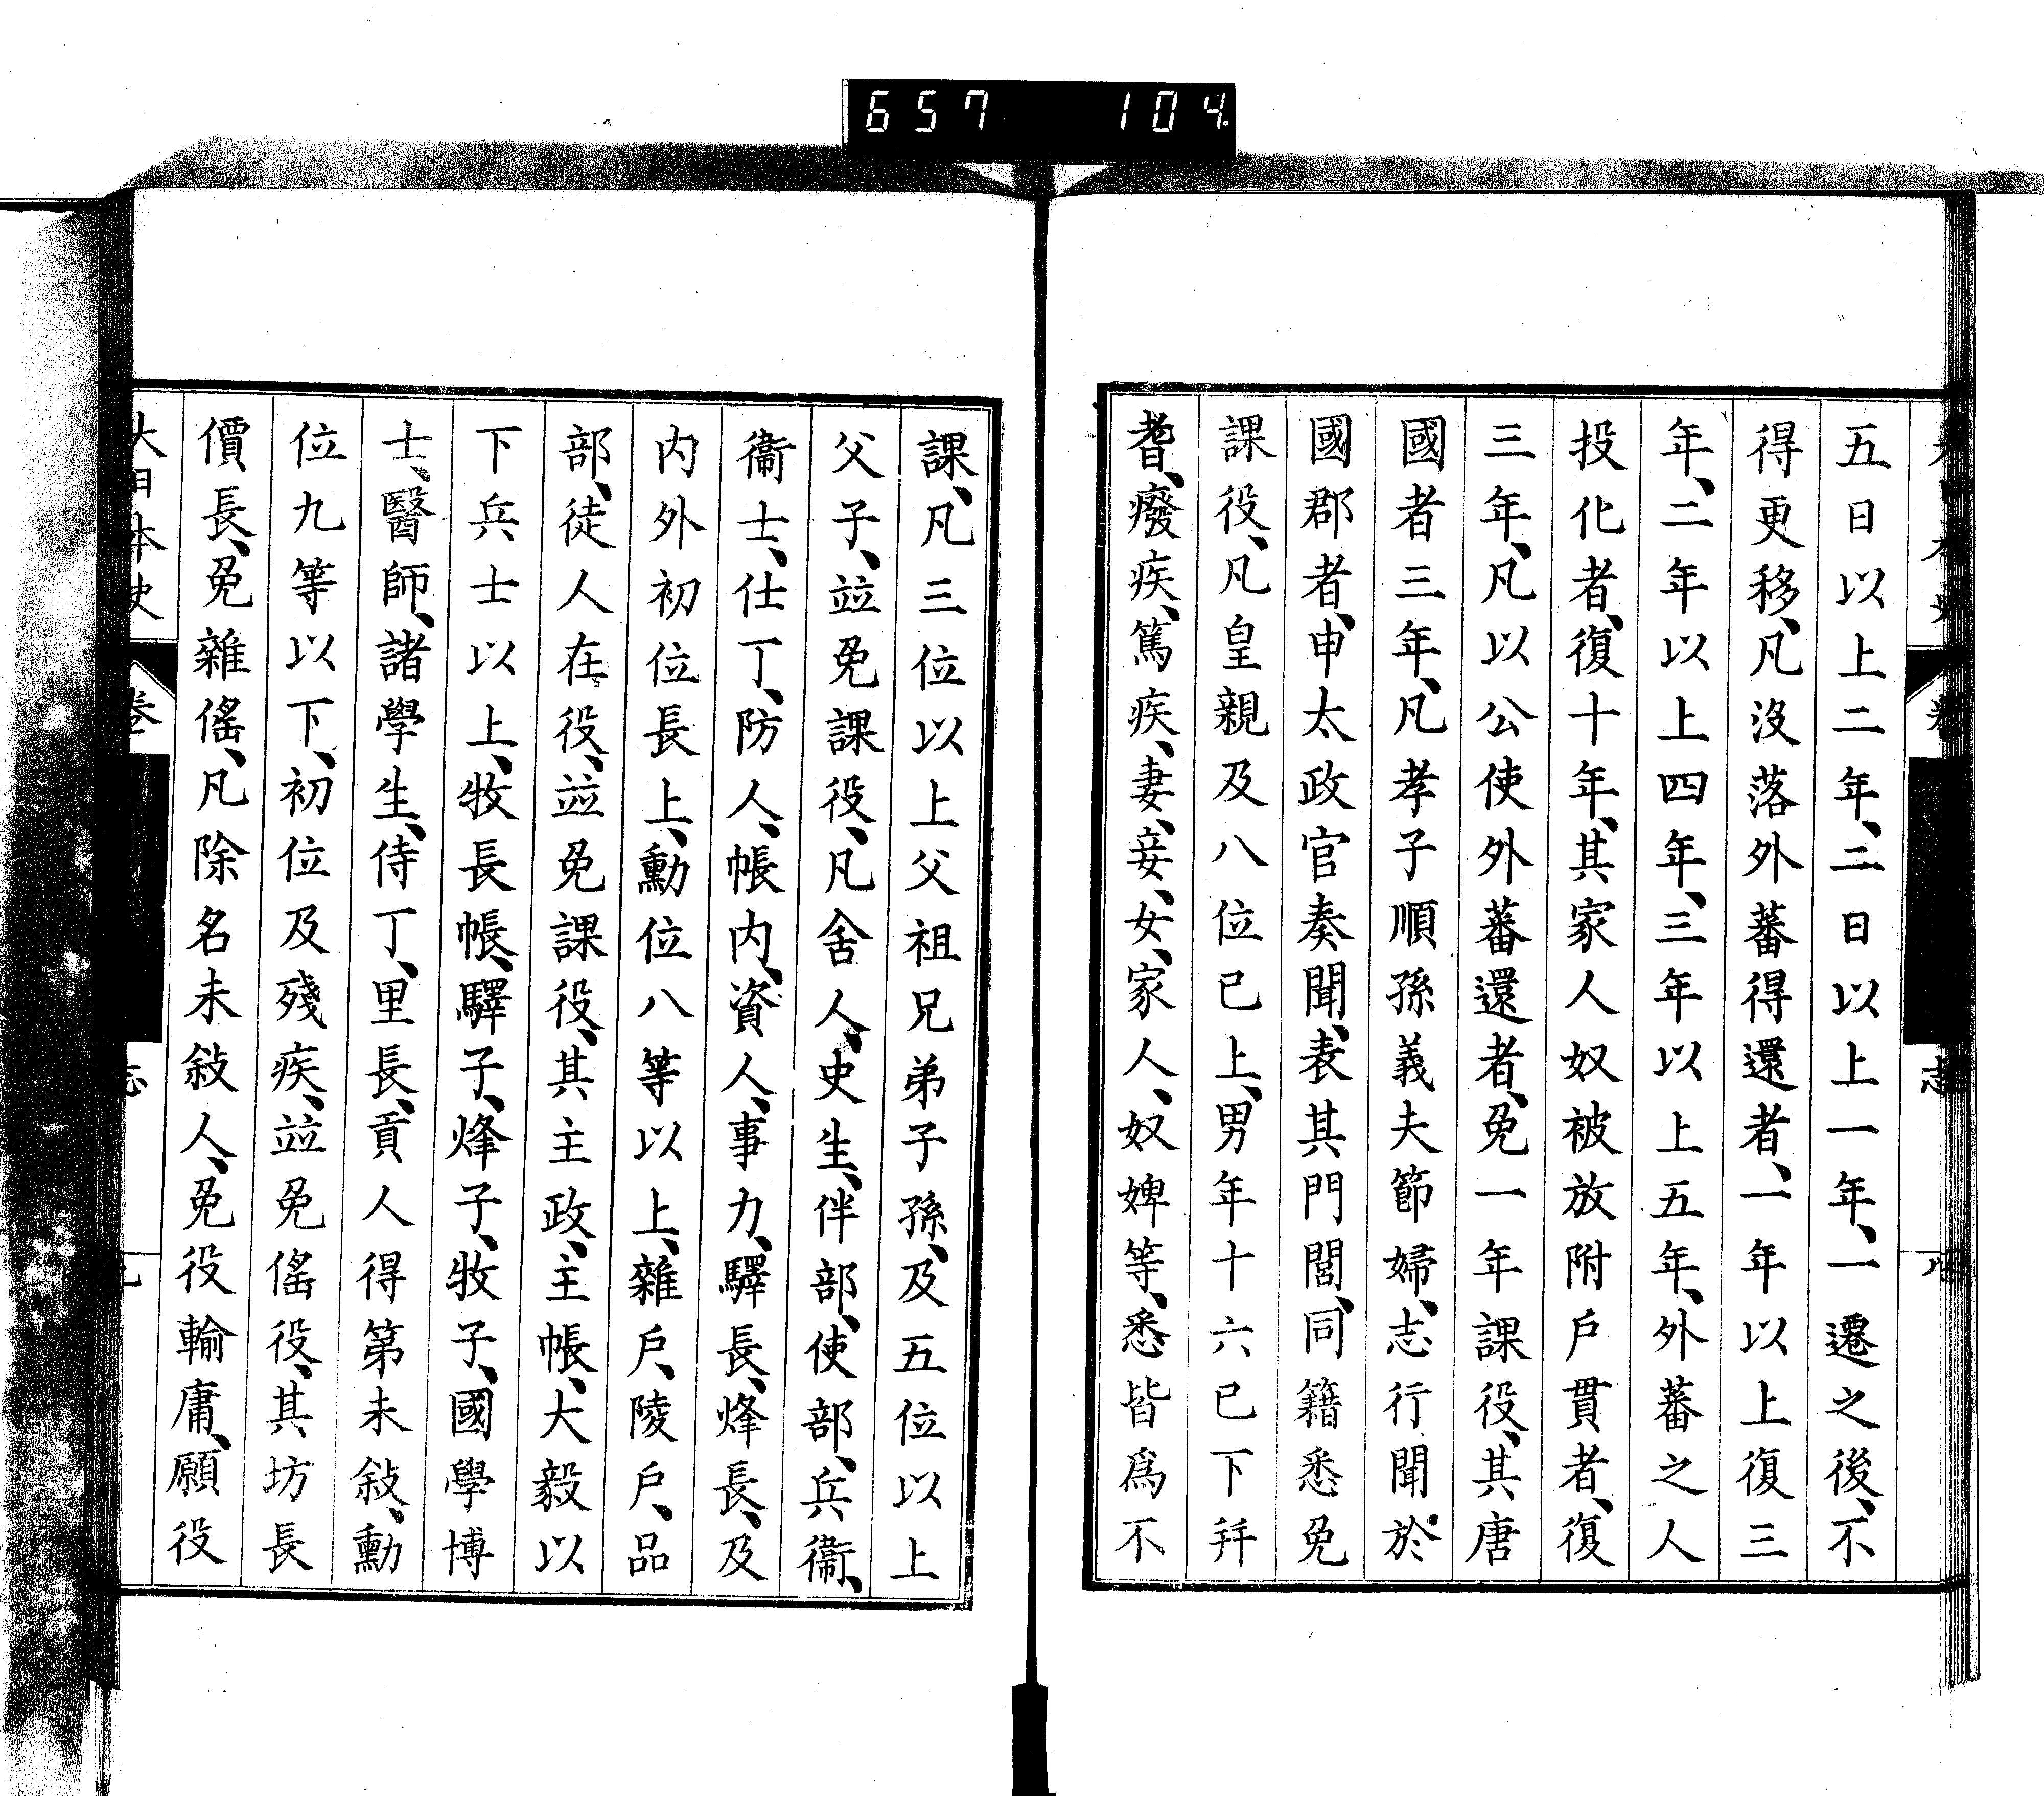 657 104
五日以上二年、二日以上一年、一遷之後、不
得更移、凡沒落外蕃得還者、一年以上復三
年、二年以上四年、三年以上五年、外蕃之人
投化者、復十年、其家人奴被放附戶貫者、復
三年、凡以公使外蕃還者、免一年課役、其唐
國者三年、凡孝子順孫義夫節婦、志行聞於
國郡者、申太政官奏聞、表其門閭、同籍悉免
課役、凡皇親及八位已上、男年十六已下幷
耆、癈疾、篤疾、妻、妾、女、家人、奴婢等、悉皆爲不
課、凡三位以上父祖兄弟子孫、及五位以上
父子、竝免課役、凡舍人、史生、伴部、使部、兵衞、
衞士、仕丁、防人、帳内、資人、事力、驛長、烽長、及
内外初位長上、勳位八等以上、雜戶、陵戶、品
部、徒人在役、竝免課役、其主政、主帳、大毅以
下兵士以上、牧長帳、驛子、烽子、牧子、國學博
士、醫師、諸學生、侍丁、里長、貢人得第未敍、勳
位九等以下、初位及殘疾、竝免徭役、其坊長
價長、免雜徭、凡除名未敍人、免役輸庸、願役
大日本史 卷 志